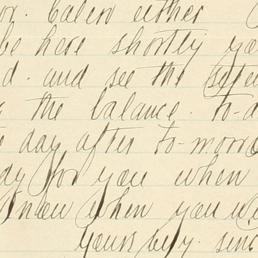 or. Calero either
be here shortly ye
d. and see the
the balance. to-d
day after to-morro
dy for you when
Know when you w
yours very sinc